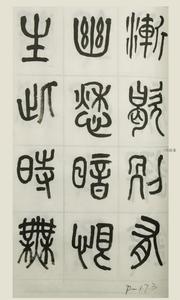 漸歇別有
幽愁暗恨
生此時無
P-173